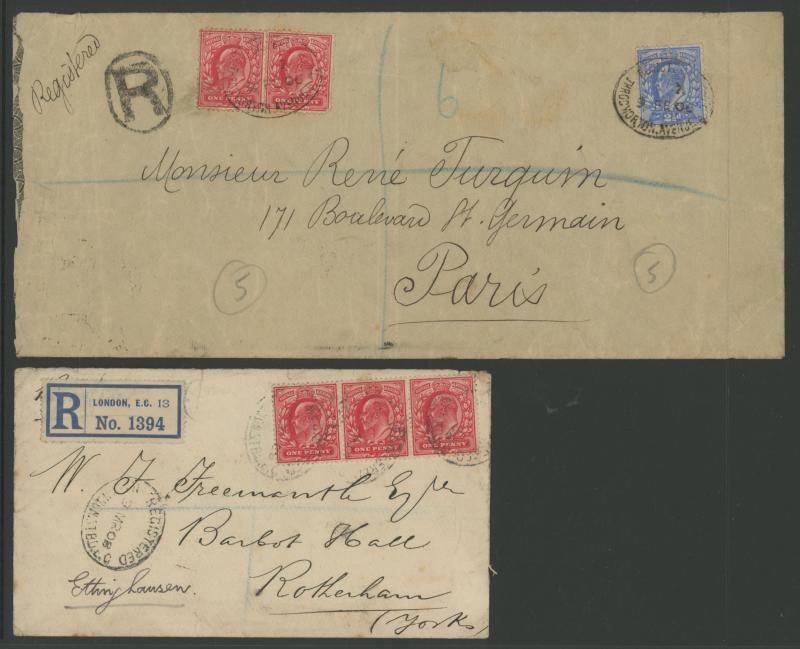 Registered
R
ONE PENNY
ONE PENNY
6
THROGMORTON AVENUE
Monsieur René Turquin
171 Boulevard St. Germain
Paris
5
5
R
LONDON, E.C. 13
No. 1394
ONE PENNY
ONE PENNY
ONE PENNY
W. F. Freemantle Esqre
Barbot Hall
Rotherham
(Yorks)
REGISTERED
MR 08
Ettinghausen.